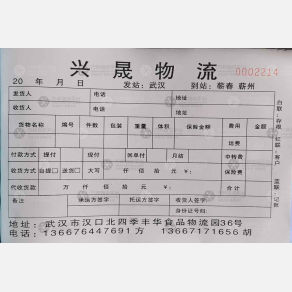 兴晟物流
0002214
20 年 月 日 发站:武汉 到站:蕲春 蕲州
发货人 电话 地址
收货人 电话 地址
货物名称 编号 件数 包装 重量 体积 保险金额 费用 金额
运费
付款方式 提付 现付 回单付 月结 中转费
收货方式 自提□ 送货□ 大写 仟 佰 拾 元 保险费
代收货款 万 仟 佰 拾 元 合计
备注 承运方签字 托运方签字 收货人签字:
身份证号码:
地址:武汉市汉口北四季丰华食品物流园36号
电话:13667644769​1 万 13667171656 胡
白联:存根 红联:客户 蓝联:记账